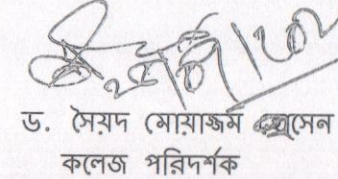 ড. সৈয়দ মোয়াজ্জম হোসেন
কলেজ পরিদর্শক